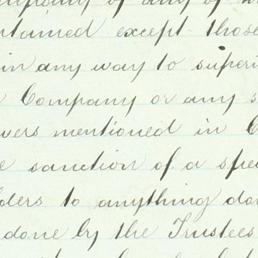 any of
tained except those
in any way to superi
Company or any s
vers mentioned in C
e sanction of a spe
ders to anything do
done by the Trustees